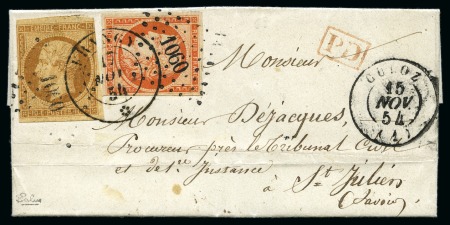 EMPIRE FRANC
1060
1060
15
NOV
54
P.D.
CULOZ
15
NOV.
54
(1)
Monsieur
Monsieur Déjacques,
Procureur près le Tribunal Civil
et de 1re Instance
à St Julien
(Savoie)